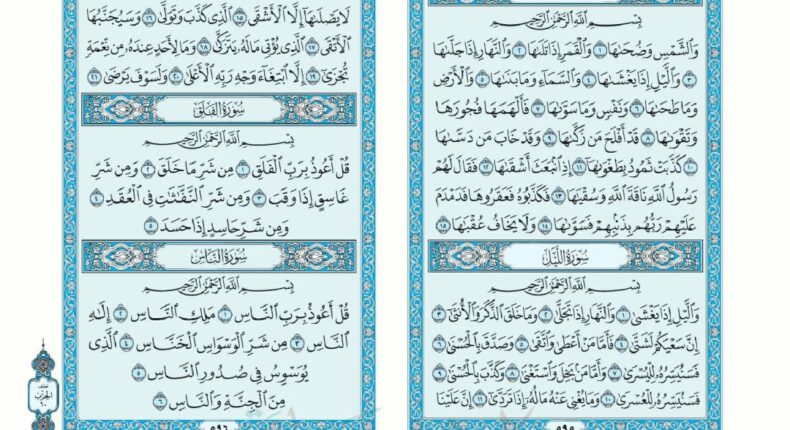 بِسْمِ ٱللَّهِ ٱلرَّحْمَٰنِ ٱلرَّحِيمِ
وَٱلشَّمْسِ وَضُحَىٰهَا ١ وَٱلْقَمَرِ إِذَا تَلَىٰهَا ٢ وَٱلنَّهَارِ إِذَا جَلَّىٰهَا
٣ وَٱلَّيْلِ إِذَا يَغْشَىٰهَا ٤ وَٱلسَّمَآءِ وَمَا بَنَىٰهَا ٥ وَٱلْأَرْضِ
وَمَا طَحَىٰهَا ٦ وَنَفْسٍ وَمَا سَوَّىٰهَا ٧ فَأَلْهَمَهَا فُجُورَهَا
وَتَقْوَىٰهَا ٨ قَدْ أَفْلَحَ مَن زَكَّىٰهَا ٩ وَقَدْ خَابَ مَن دَسَّىٰهَا
١٠ كَذَّبَتْ ثَمُودُ بِطَغْوَىٰهَآ ١١ إِذِ ٱنۢبَعَثَ أَشْقَىٰهَا ١٢ فَقَالَ لَهُمْ
رَسُولُ ٱللَّهِ نَاقَةَ ٱللَّهِ وَسُقْيَٰهَا ١٣ فَكَذَّبُوهُ فَعَقَرُوهَا فَدَمْدَمَ
عَلَيْهِمْ رَبُّهُم بِذَنۢبِهِمْ فَسَوَّىٰهَا ١٤ وَلَا يَخَافُ عُقْبَٰهَا ١٥
سُورَةُ ٱللَّيْلِ
بِسْمِ ٱللَّهِ ٱلرَّحْمَٰنِ ٱلرَّحِيمِ
وَٱلَّيْلِ إِذَا يَغْشَىٰ ١ وَٱلنَّهَارِ إِذَا تَجَلَّىٰ ٢ وَمَا خَلَقَ ٱلذَّكَرَ وَٱلْأُنثَىٰٓ ٣
إِنَّ سَعْيَكُمْ لَشَتَّىٰ ٤ فَأَمَّا مَنْ أَعْطَىٰ وَٱتَّقَىٰ ٥ وَصَدَّقَ بِٱلْحُسْنَىٰ ٦
فَسَنُيَسِّرُهُۥ لِلْيُسْرَىٰ ٧ وَأَمَّا مَنۢ بَخِلَ وَٱسْتَغْنَىٰ ٨ وَكَذَّبَ بِٱلْحُسْنَىٰ ٩
فَسَنُيَسِّرُهُۥ لِلْعُسْرَىٰ ١٠ وَمَا يُغْنِي عَنْهُ مَالُهُۥٓ إِذَا تَرَدَّىٰٓ ١١ إِنَّ عَلَيْنَا
٥٩٥
لَا يَصْلَىٰهَآ إِلَّا ٱلْأَشْقَى ١٥ ٱلَّذِي كَذَّبَ وَتَوَلَّىٰ ١٦ وَسَيُجَنَّبُهَا
ٱلْأَتْقَى ١٧ ٱلَّذِي يُؤْتِي مَالَهُۥ يَتَزَكَّىٰ ١٨ وَمَا لِأَحَدٍ عِندَهُۥ مِن نِّعْمَةٍ
تُجْزَىٰٓ ١٩ إِلَّا ٱبْتِغَآءَ وَجْهِ رَبِّهِ ٱلْأَعْلَىٰ ٢٠ وَلَسَوْفَ يَرْضَىٰ ٢١
سُورَةُ ٱلْفَلَقِ
بِسْمِ ٱللَّهِ ٱلرَّحْمَٰنِ ٱلرَّحِيمِ
قُلْ أَعُوذُ بِرَبِّ ٱلْفَلَقِ ١ مِن شَرِّ مَا خَلَقَ ٢ وَمِن شَرِّ
غَاسِقٍ إِذَا وَقَبَ ٣ وَمِن شَرِّ ٱلنَّفَّٰثَٰتِ فِي ٱلْعُقَدِ ٤
وَمِن شَرِّ حَاسِدٍ إِذَا حَسَدَ ٥
سُورَةُ ٱلنَّاسِ
بِسْمِ ٱللَّهِ ٱلرَّحْمَٰنِ ٱلرَّحِيمِ
قُلْ أَعُوذُ بِرَبِّ ٱلنَّاسِ ١ مَلِكِ ٱلنَّاسِ ٢ إِلَٰهِ
ٱلنَّاسِ ٣ مِن شَرِّ ٱلْوَسْوَاسِ ٱلْخَنَّاسِ ٤ ٱلَّذِي
يُوَسْوِسُ فِي صُدُورِ ٱلنَّاسِ ٥
مِنَ ٱلْجِنَّةِ وَٱلنَّاسِ ٦
٥٩٦
نصف
الحزب
٦٠